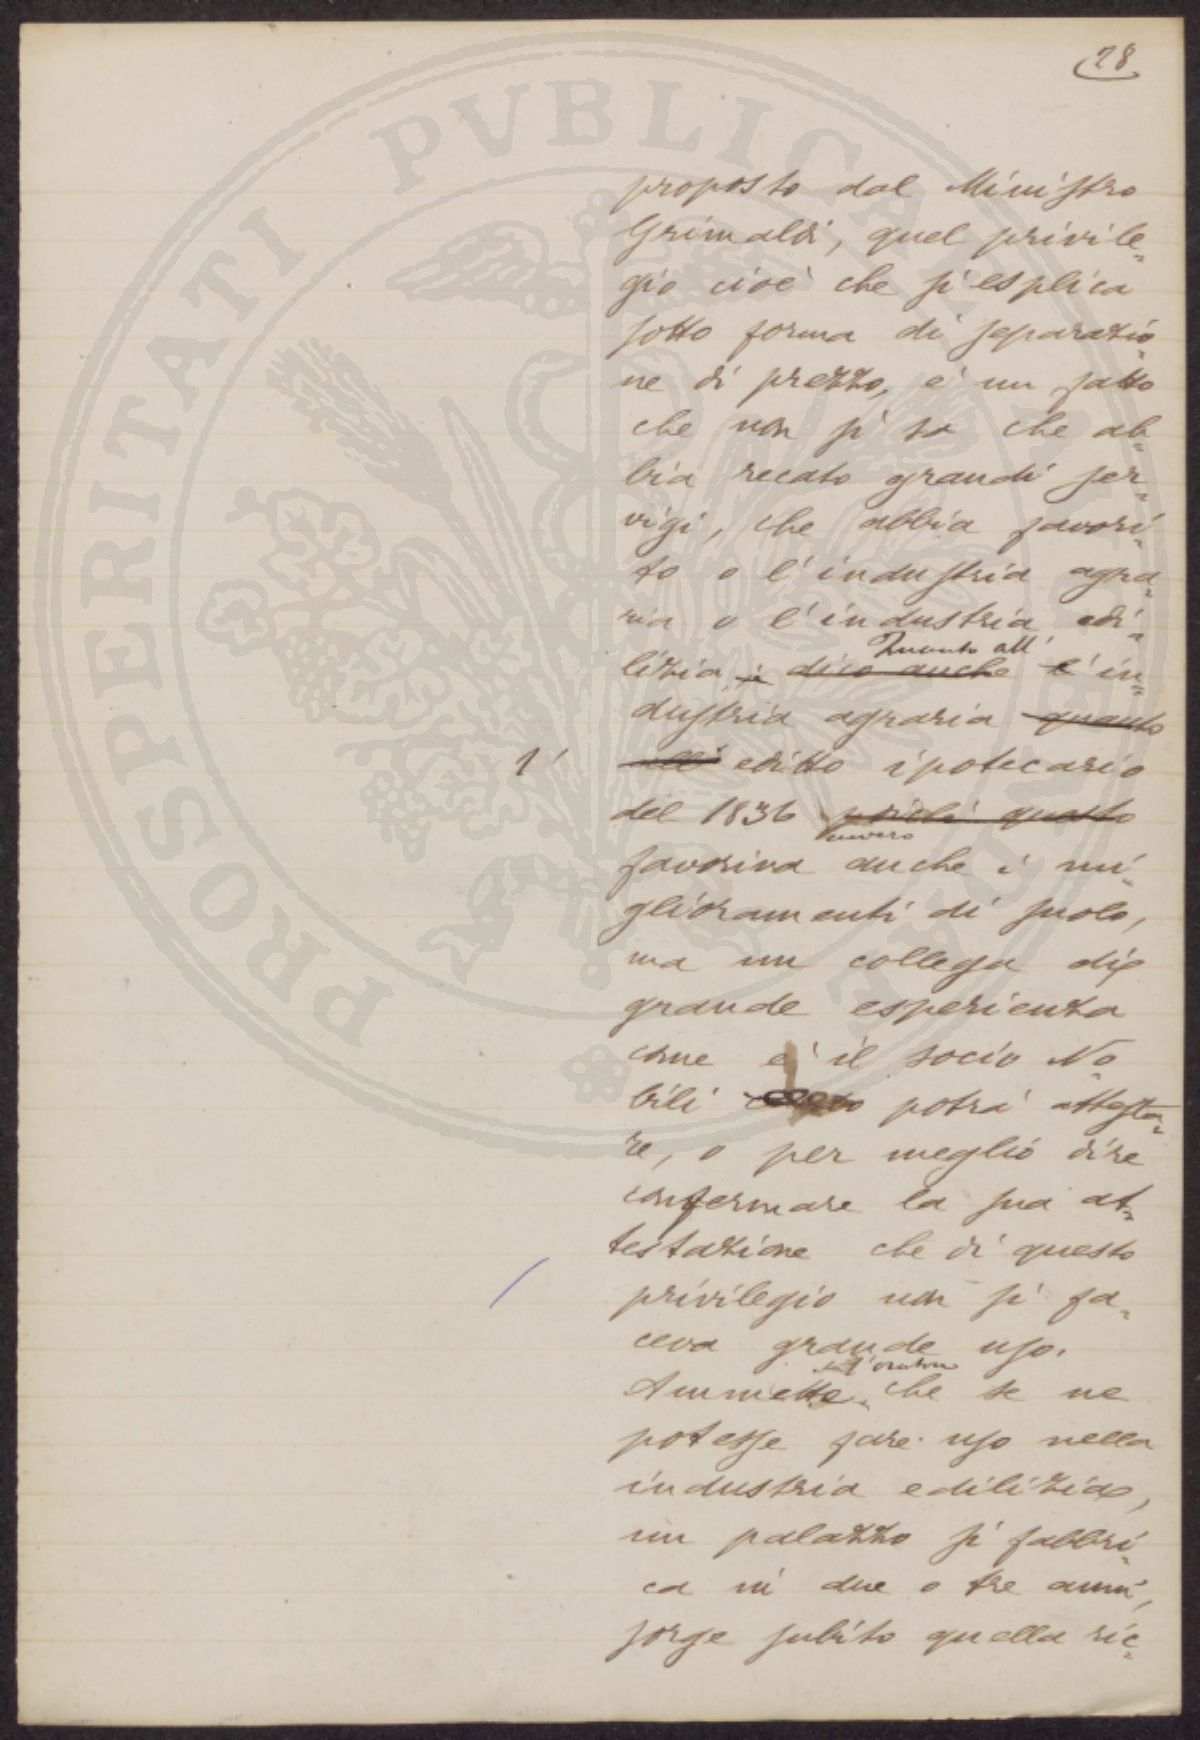 28
proposto dal Ministro
Grimaldi, quel privile-
gio cioè che si esplica
sotto forma di separazio-
ne di prezzo, è un fatto
che non si sa che ab-
bia recato grandi ser-
vigi, che abbia favori-
to o l'industria agra-
ria o l'industria edi-
Quanto all'
lizia e dico anche l'in-
dustria agraria quanto
l' all' editto ipotecario
del 1836 poichè questo
invero
favoriva anche i mi-
glioramenti di suolo,
ma un collega di
grande esperienza
come è il socio No-
bili potrà attesta-
re, o per meglio dire
confermare la sua at-
testazione che di questo
privilegio non si fa-
ceva grande uso.
l'oratore
Ammette che se ne
potesse fare uso nella
industria edilizia,
un palazzo si fabbri-
ca in due o tre anni,
sorge subito quella ric-
PROSPERITATI PVBLICAE